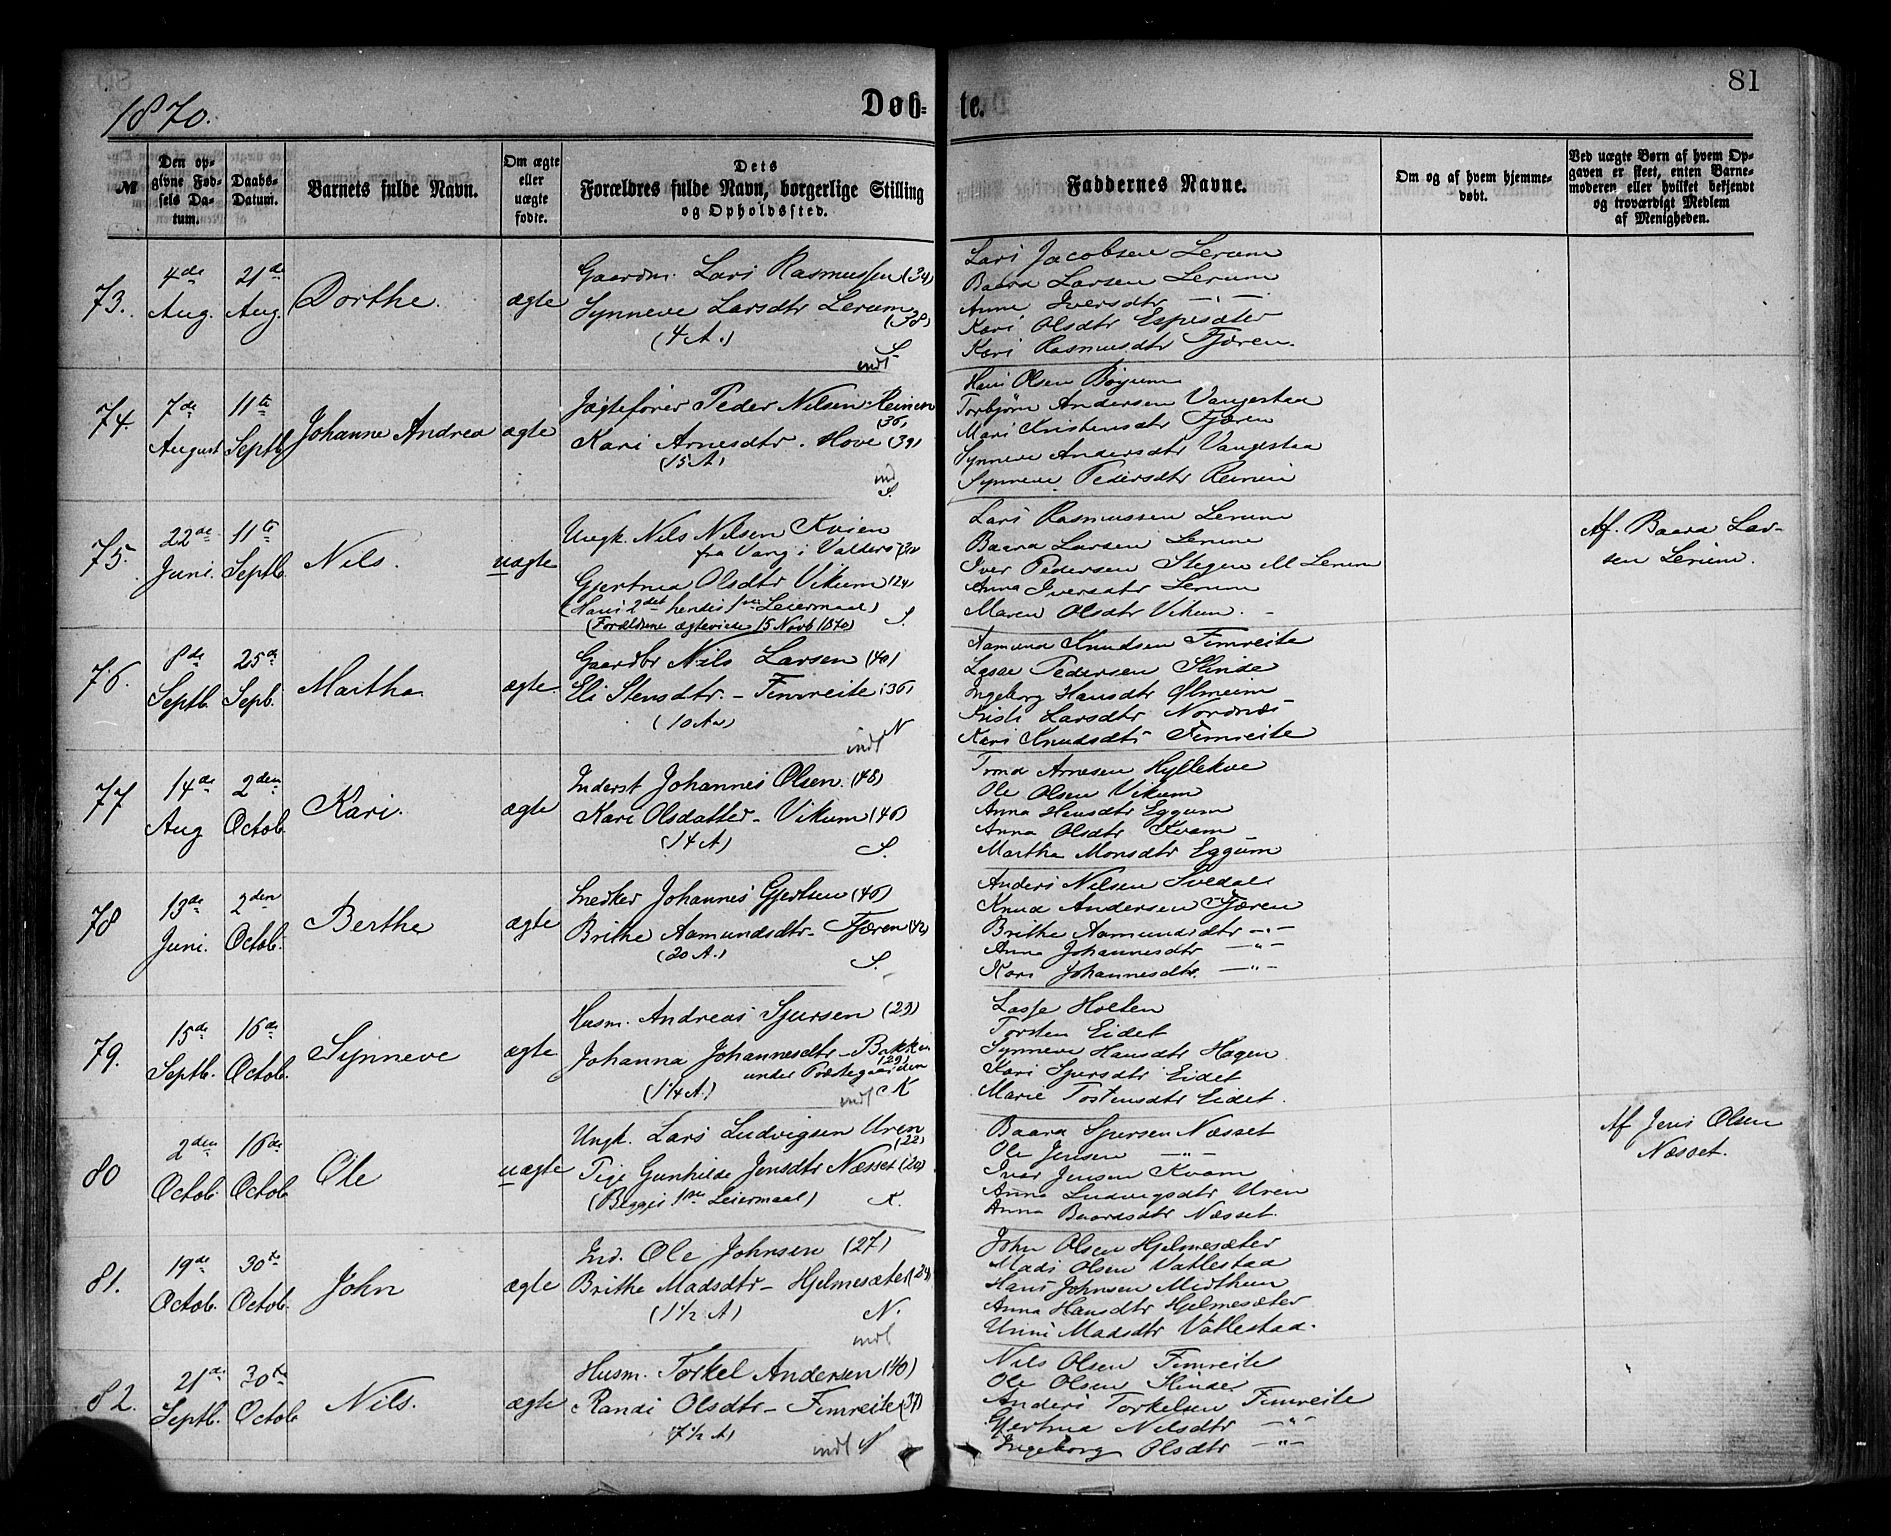 81
1870.
Døb- te.
№
Den op-
givne Fød-
sels Da-
tum.
Daabs-
Datum.
Barnets fulde Navn.
Om ægte
eller
uægte
fødte.
Dets
Forældres fulde Navn, borgerlige Stilling
og Opholdssted.
Faddernes Navne.
Om og af hvem hjemme-
døbt.
Ved uægte Børn af hvem Op-
gaven er skeet, enten Barne-
moderen eller hvilket bekjendt
og troværdigt Medlem
af Menigheden.
73.
4de
Aug.
21de
Aug.
Dorthe.
ægte
Gaardm. Lars Rasmussen (34)
Synneve Larsdtr Lerum
(38)
(4 A.)
S
indl
Lars Jacobsen Lerum
Baard Larsen Lerum
Anne Iversdtr —"—
Kari Olsdtr Espesæter
Kari Rasmusdtr Fjæren.
74.
7de
August
11te
Septb.
Johanne Andrea
ægte
Jægtefører Peder Nilsen Reinen
(36)
Kari Arnesdtr. Hove (39)
(15 A)
ind
S.
Hans Olsen Bøyum
Torbjørn Andersen Vangestaa
Mari Kristensdtr Fjæren
Synneve Andersdtr Vangestaa
Synneve Pedersdtr Reinen
75.
22de
Juni.
11te
Septb.
Nils.
uægte
Ungk. Nils Nilsen Kvien
fra Vang i Valders
Gjertrud Olsdtr Vikum (24)
(Hans 2det hendes 1ste Leiermaal)
(Forældrene ægteviede 15 Novb 1870)
S.
Lars Rasmussen Lerum
Baard Larsen Lerum
Iver Pedersen Stegen M Lerum
Anna Iversdtr Lerum
Maren Olsdtr Vikum.
Af. Baard Lar-
sen Lerum.
76.
8de
Septb.
25de
Sepb.
Martha
ægte
Gaardbr Nils Larsen (40)
Eli Stensdtr - Fimreite (36)
(10 A)
N
indl
Aamund Knudsen Fimreite
Lasse Pedersen Slinde
Ingeborg Hansdtr Ølmeim
Kristi Larsdtr Nordnæs
Kari Knudsdtr Fimreite
77
14de
Aug
2den
Octob.
Kari.
ægte
Inderst Johannes Olsen. (48)
Kari Olsdatter - Vikum (46)
(14 A)
S.
Trond Arnesen Hyllekve
Ole Olsen Vikum
Anna Hansdtr Eggum
Anna Olsdtr Kvam
Martha Monsdtr Eggum
78
13de
Juni.
2den
Octob.
Berthe
ægte
Snedker Johannes Gjertsen (46)
Brithe Aamundsdtr - Fjæren (42)
(20 A.)
S.
Anders Nilsen Svedal
Knud Andersen Fjæren
Brithe Aamundsdtr —"—
Anna Johannesdtr —"—
Kari Johannesdtr. —"—
79.
15de
Septb.
16de
Octob.
Synneve
ægte
Husm. Andreas Sjursen (29)
Johanna Johannesdtr - Bakken
(29)
under Præstegaarden
(1/4 A.)
indl K
Lasse Holten
Torsten Eidet
Synneve Hansdtr Hagen
Kari Sjursdtr Eidet
Marie Tostensdtr Eidet.
80
2den
Octob.
16de
Octob.
Ole
uægte
Ungk. Lars Ludvigsen Uren
(22)
Pige Gunhilde Jensdtr Næsset (20)
(Begges 1ste Leiermaal)
K.
Baard Sjursen Næsset
Ole Jensen —"—
Iver Jensen Kvam
Anna Ludvigsdtr Uren
Anna Baardsdtr Næsset.
Af Jens Olsen
Næsset.
81.
19de
Octob.
30te
Octob.
John
ægte
Ind. Ole Johnsen (27)
Brithe Madsdtr - Hjelmesæter (24)
(1 1/2 A)
N.
indl
John Olsen Hjelmesæter
Mads Olsen Vatlestaa
Hans Johnsen Midthun
Anna Hansdtr Hjelmesæter
Unni Madsdtr Vatlestaa.
82.
21de
Septb.
30te
Octob
Nils.
ægte
Husm. Torkel Andersen (40)
Randi Olsdtr - Fimreite (37)
(7 1/2 A)
indl N
Nils Olsen Fimreite
Ole Olsen Slinde
Anders Torkelsen Fimreite
Gjertrud Nilsdtr —"—
Ingeborg Olsdtr —"—